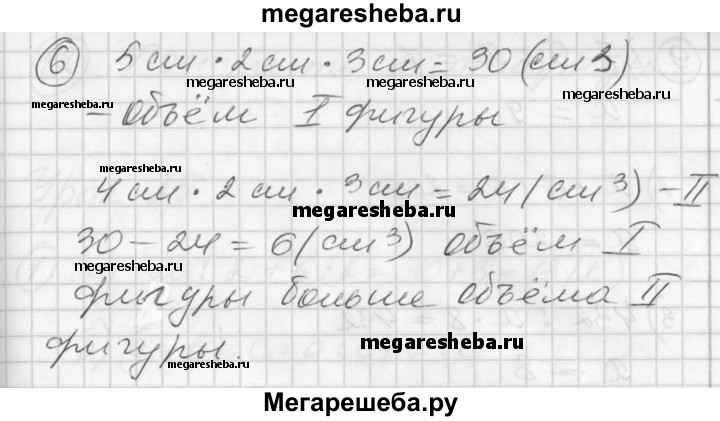 megaresheba.ru
6 5 см · 2 см · 3 см = 30 (см3)
megaresheba.ru
megaresheba.ru
megaresheba.ru
– объём I фигуры
megaresheba.ru
4 см · 2 см · 3 см = 24 (см3) – II
megaresheba.ru
30 – 24 = 6 (см3) объём I
megaresheba.ru
фигуры больше объёма II
фигуры.
megaresheba.ru
megaresheba.ru
Мегарешеба.ру